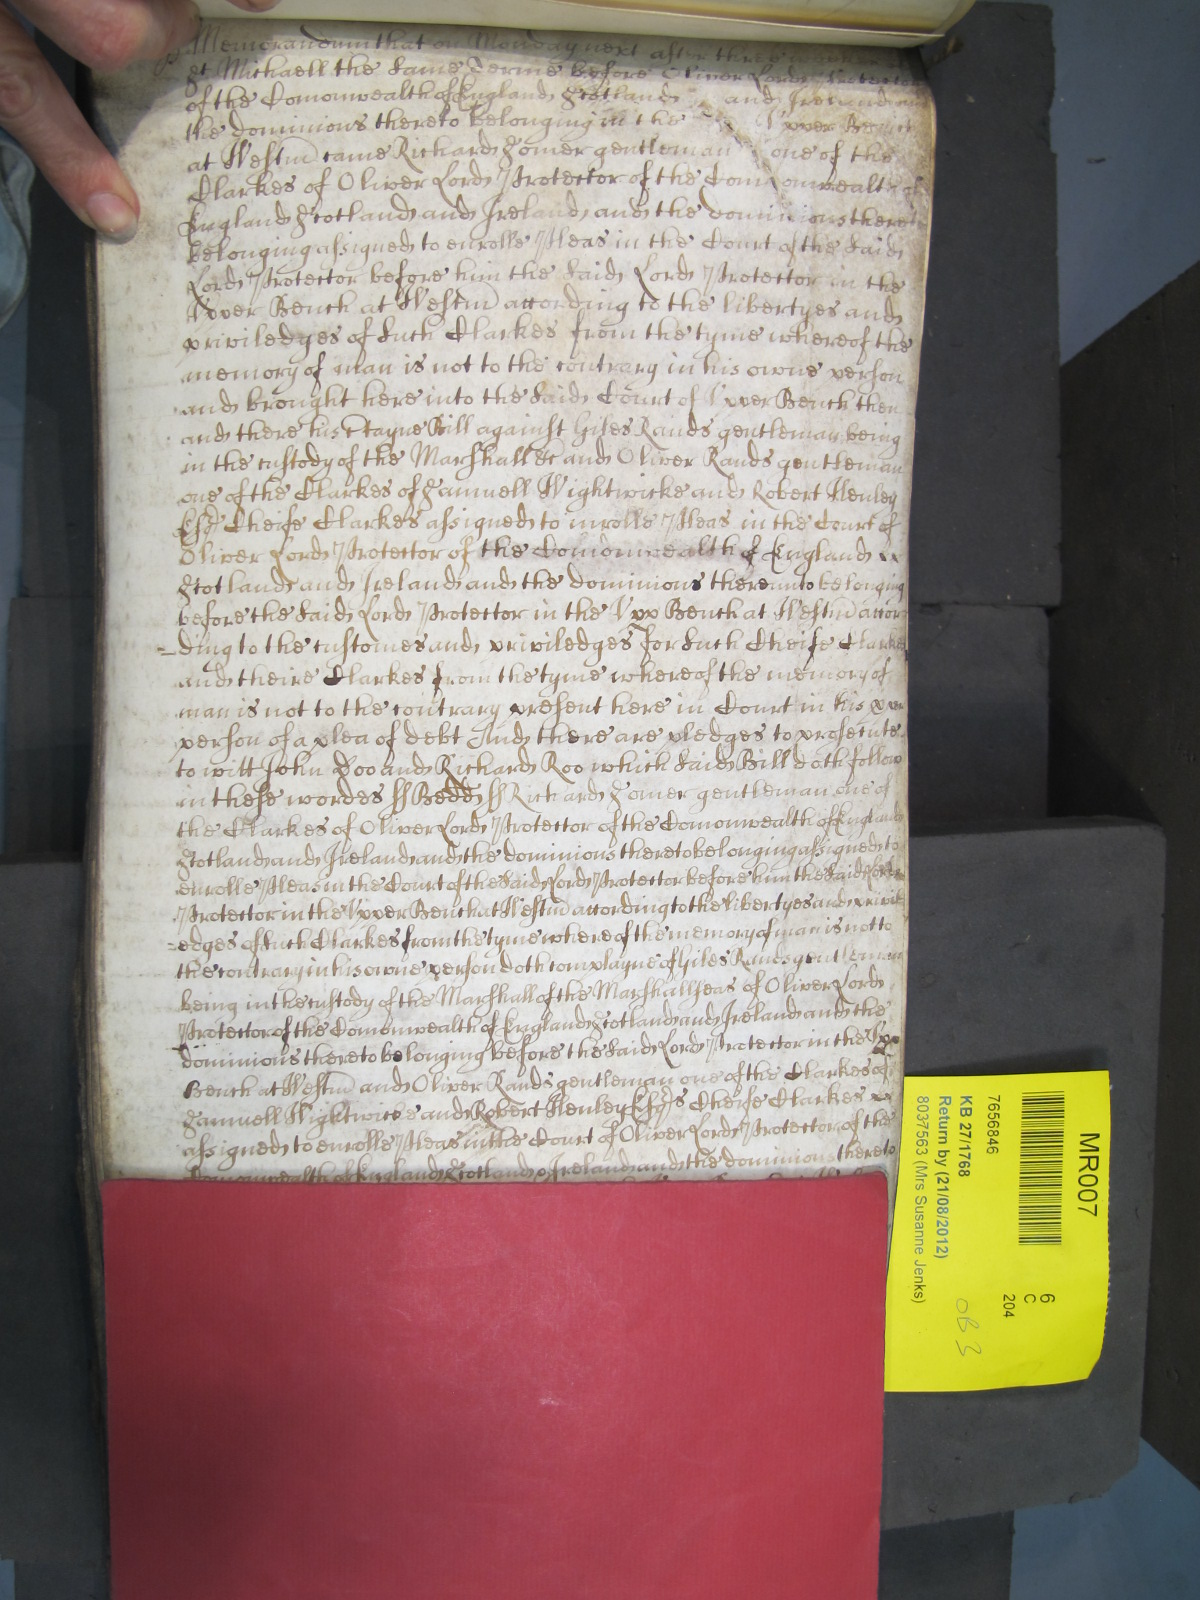 Memorandum that on Monday next after three weekes of
St Michaell the same Terme before Oliver Lord Protector
of the Comonwealth of England Scotland and Ireland and
the dominions thereto belonging in the Upper Bench
at Westm came Richard Somer gentleman one of the
Clarkes of Oliver Lord Protector of the Comonwealth of
England Scotland and Ireland and the dominions thereto
belonging assigned to enrolle Pleas in the Court of the said
Lord Protector before him the said Lord Protector in the
Upper Bench at Westm according to the libertyes and
priviledges of such Clarkes from the tyme whereof the
memory of man is not to the contrary in his owne person
and brought here into the said Court of Upper Bench then
and there his certayne Bill against Giles Rands gentleman being
in the custody of the Marshall &c and Oliver Rands gentleman
one of the Clarkes of Samuell Wightwicke and Robert Henley
Esqs Cheife Clarkes assigned to inrolle Pleas in the Court of
Oliver Lord Protector of the Comonwealth of England
Scotland and Ireland and the dominions thereunto belonging
before the said Lord Protector in the Upp Bench at Westm accor
-ding to the customes and priviledges for such Cheife Clarkes
and theire Clarkes from the tyme whereof the memory of
man is not to the contrary present here in Court in his pper
person of a plea of debt And there are pledges to prosecute
to witt John Doo and Richard Roo which said Bill doth follow
in these wordes ss Bedd ss Richard Somer gentleman one of
the Clarkes of Oliver Lord Protector of the Comonwealth of England
Scotland and Ireland and the dominions thereto belonging assigned to
enrolle Pleas in the Court of the said Lord Protector before him the said Lord
Protector in the Upper Bench at Westm according to the libertyes and privil
-edges of such Clarkes from the tyme whereof the memory of man is not to
the contrary in his owne person doth complayne of Giles Rands gentleman
being in the custody of the Marshall of the Marshallseas of Oliver Lord
Protector of the Comonwealth of England Scotland and Ireland and the
dominions thereto belonging before the said Lord Protector in the Upp
Bench at Westm and Oliver Rands gentleman one of the Clarkes of
Samuell Wightwicke and Robert Henley Esqs Cheife Clarkes
assigned to enrolle Pleas in the Court of Oliver Lord Protector of the
Comonwealth of England Scotland & Ireland and the dominions thereto
MR007
6
C
204
7656846
KB 27/1768
Return by (21/08/2012)
8037563 (Mrs Susanne Jenks)
OB 3